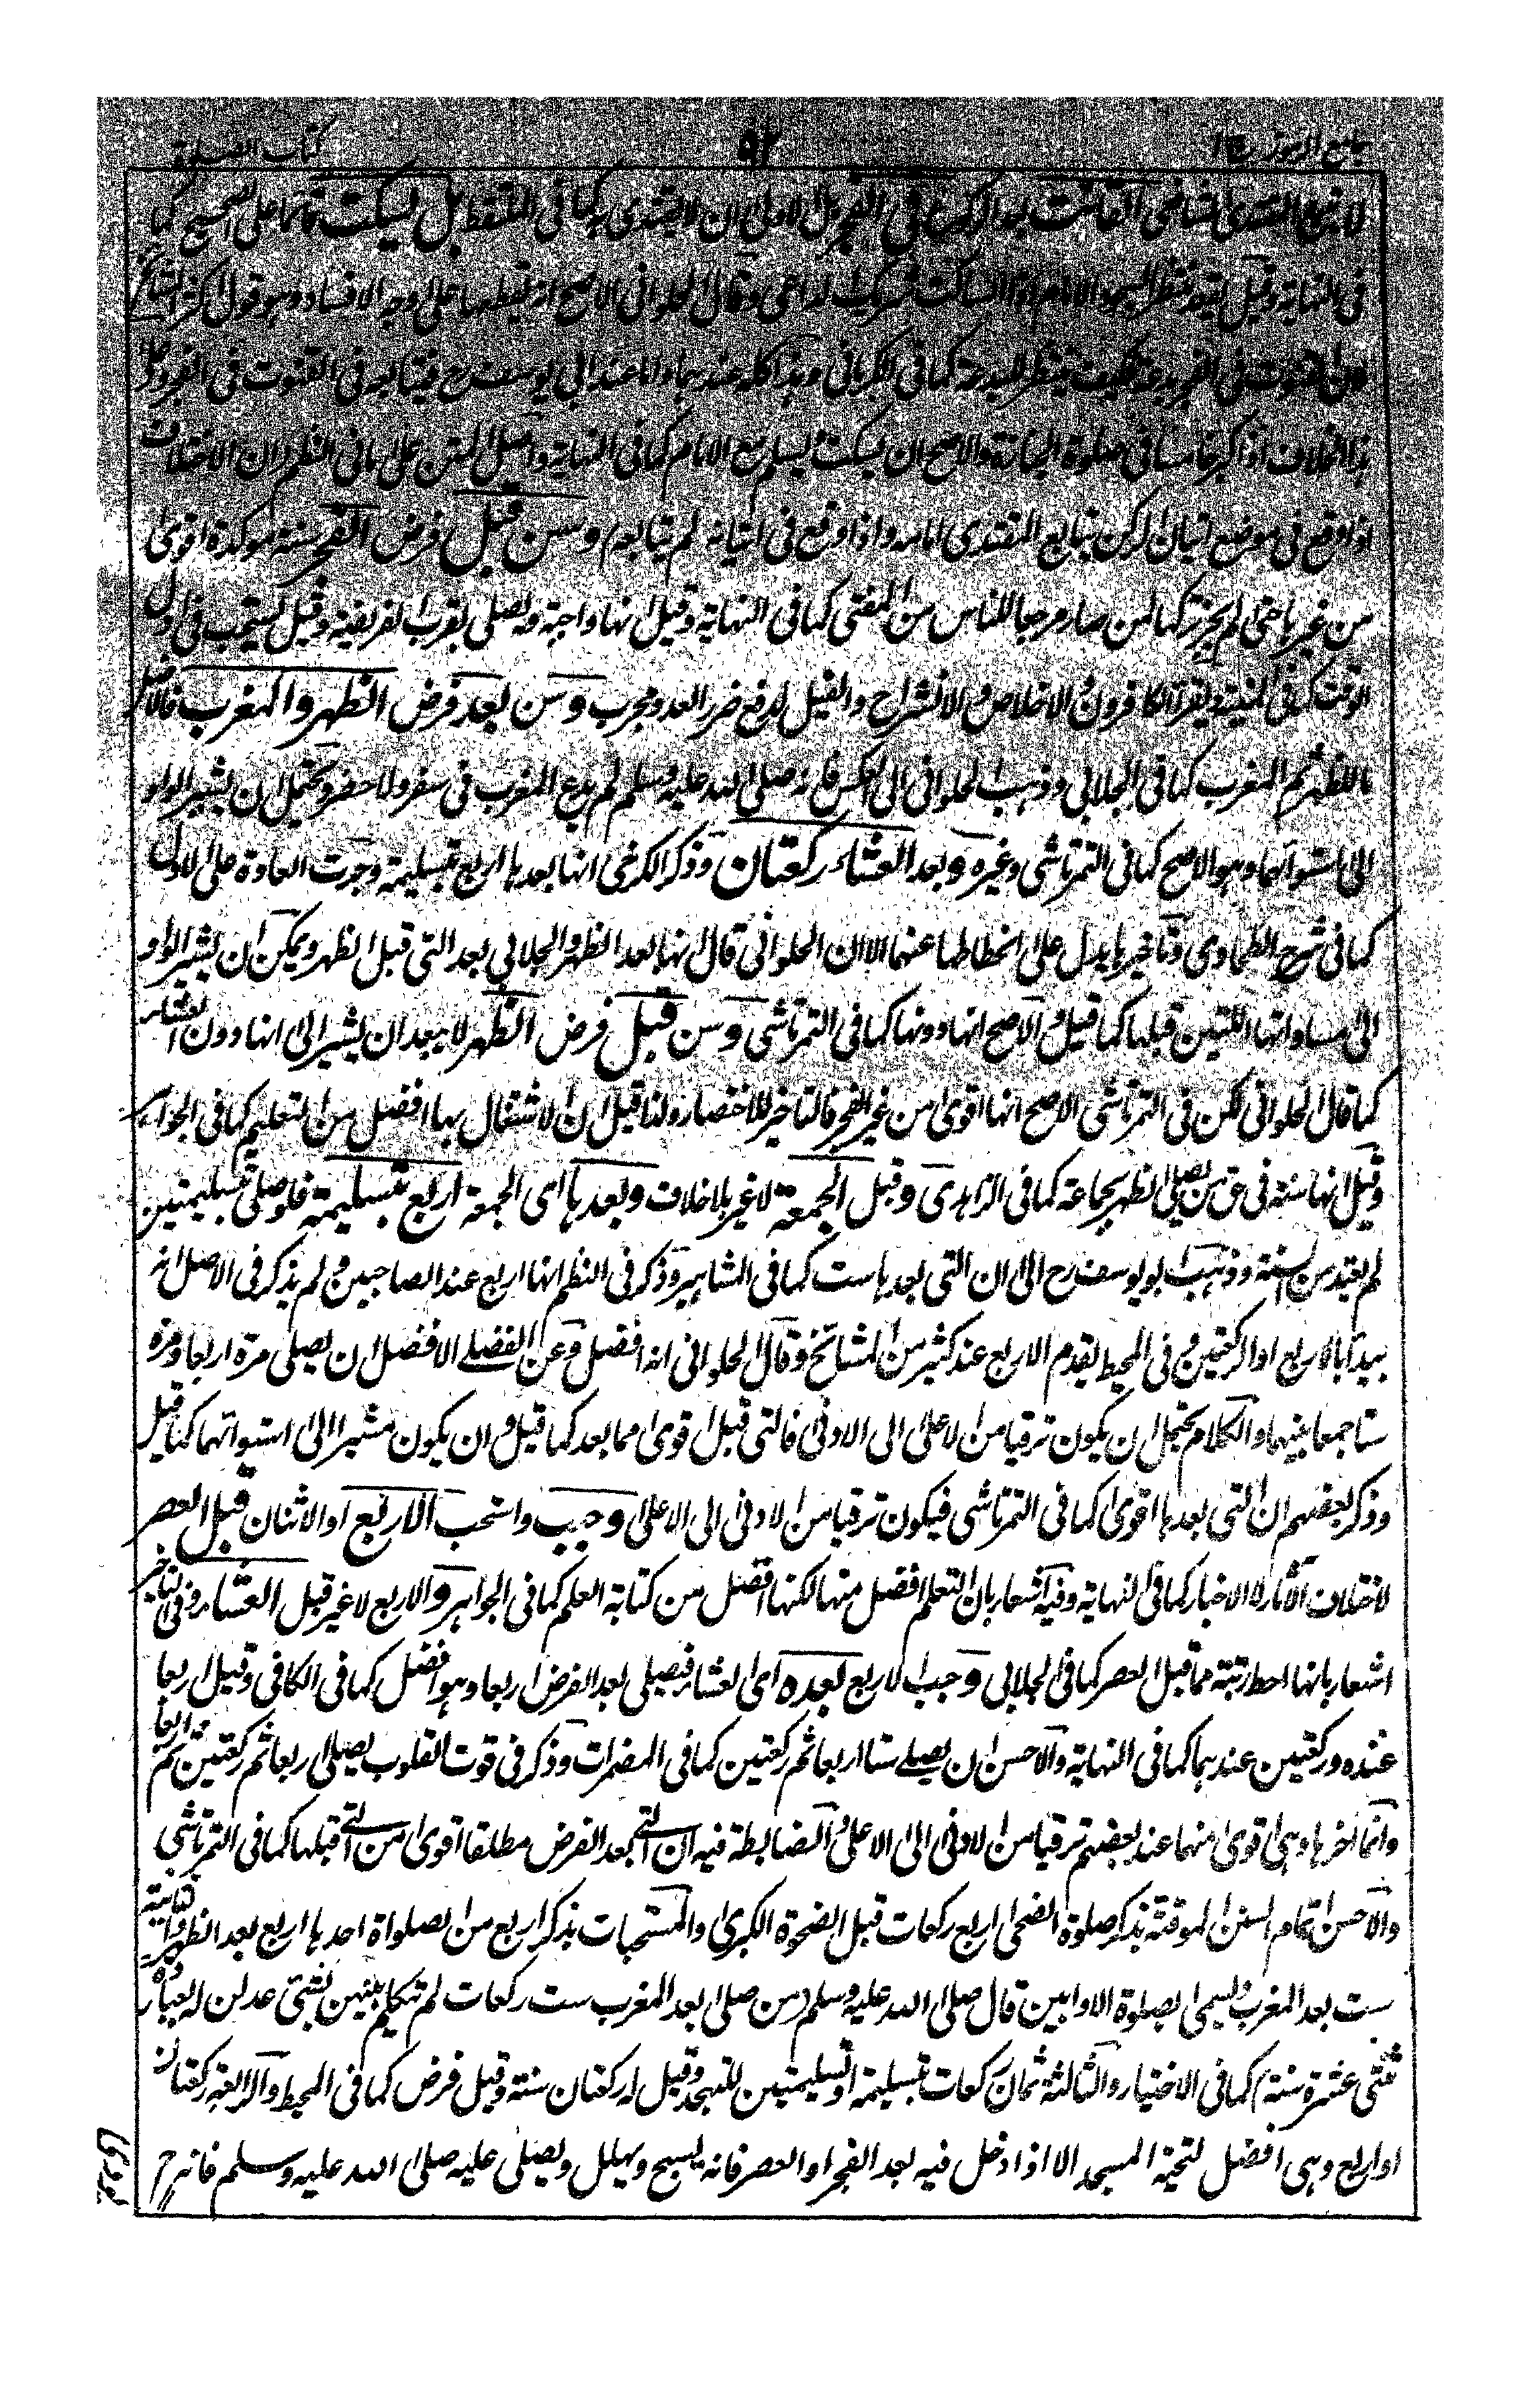 جامع الرموز ج ١ ٩٢ كتاب الصلوة
لا يتبع المقتدى الشافعى القانت بعد الركوع فى الفجر بل الاولى ان لا يقتدى به كما فى الملتقط بل يسكت قائما على الصحيح كما
فى النهاية وقيل يقعد فينتظر السجود الامام اذ الساكت شريك الداعى وقال الحلوانى الاصح انه يقطعها على وجه الافساد وهو قول اكثر المشايخ
فان القنوت فى الفجر بدعة فكيف ينتظر للبدعة كما فى الكرمانى وهذا كله عندهما واما عند ابى يوسف رح فيتابعه فى القنوت فى الفجر وعلى
هذا الخلاف اذا كبر خامسا فى صلوة الجنازة والاصح ان يسكت ليسلم مع الامام كما فى النهاية واصل المتن على ما فى النظم ان الاختلاف
اذا وقع فى موضع اتيان الركن يتابع المقتدى امامه واذا وقع فى اتيانه لم يتابعه وسن قبل فرض الفجر سنة موكدة اقوى
من غيرها حتى لم يجز تركها لمن صار مرجعا للناس من المفتى كما فى النهاية وقيل انها واجبة وتصلى بقرب الفريضة وقيل يستحب فى اول
الوقت كما فى المنية ويقرأ الكافرون والاخلاص والانشراح والفيل لدفع ضرر العدو مجرب وسن بعد فرض الظهر والمغرب فالافضل
ما للظهر ثم المغرب كما فى الجلابى وذهب الحلوانى الى العكس فانه صلى الله عليه وسلم لم يدع المغرب فى سفر ولا حضر ويحتمل ان يشير الواو
الى استوائهما وهو الاصح كما فى التمرتاشى وغيره وبعد العشاء ركعتان وذكر الكرخى انها بعدها اربع بتسليمة وجرت العادة على الاول
كما فى شرح الطحاوى وتاخيرها يدل على انحطاطها عنهما الا ان الحلوانى قال انها بعد الظهر والجلابى بعد التى قبل الظهر ويمكن ان يشير الواو
الى مساواتها اللتين قبلها كما قيل والاصح انها دونها كما فى التمرتاشى وسن قبل فرض الظهر لا يبعد ان يشير الى انها دون العشاء
كما قال الحلوانى لكن فى التمرتاشى الاصح انها اقوى من غير الفجر فالتاخير للاختصار ولذا قيل ان الاشتغال بها افضل من التعليم كما فى الجواهر
وقيل انها سنة فى حق من يصلى الظهر بجماعة كما فى الزاهدى وقبل الجمعة لا غير بلا خلاف وبعدها اى الجمعة اربع بتسليمة فلو صلى بتسليمتين
لم يعتد من السنة وذهب ابو يوسف رح الى ان التى بعدها ست كما فى المشاهير وذكر فى النظم انها اربع عند الصاحبين ولم يذكر فى الاصل انه
يبتدأ بالاربع او الركعتين وفى المحيط يقدم الاربع عند كثير من المشايخ وقال الحلوانى انه افضل وعن الفضلى الافضل ان يصلى مرة اربعا ومرة
ستا جمعا بينهما والكلام يحتمل ان يكون ترقيا من الاعلى الى الادنى فالتى قبل اقوى مما بعد كما قيل وان يكون مشيرا الى استوائهما كما قيل
وذكر بعضهم ان التى بعدها اقوى كما فى التمرتاشى فيكون ترقيا من الادنى الى الاعلى وحبب واستحب الاربع او الاثنان قبل العصر
لاختلاف الآثار لا الاخبار كما فى النهاية وفيه اشعار بان التعلم افضل منها لكنها افضل من كتابة العلم كما فى الجواهر والاربع لا غير قبل العشاء وفى التاخير
اشعار بانها احط رتبة مما قبل العصر كما فى الجلابى وحبب الاربع بعده اى العشاء فيصلى بعد الفرض اربعا وهو افضل كما فى الكافى وقيل اربعا
عنده وركعتين عندهما كما فى النهاية والاحسن ان يصلى ستا اربعا ثم ركعتين كما فى المضمرات وذكر فى قوت القلوب يصلى اربعا ثم ركعتين ثم اربعا
وانما اخرها وهى اقوى منهما عند بعضهم ترقيا من الادنى الى الاعلى والضابطة فيه ان التى بعد الفرض مطلقا اقوى من التى قبلها كما فى التمرتاشى
والاحسن اتمام السنن الموقتة بذكر صلوة الضحى اربع ركعات قبل الضحوة الكبرى والمستحبات بذكر اربع من الصلواة احدها اربع بعد الظهر والثانية
ست بعد المغرب وليسمى بصلوة الاوابين قال صلى الله عليه وسلم (من صلى بعد المغرب ست ركعات لم يتكلم بينهن بشئ عدلن له بعبادة
ثنتى عشرة سنة) كما فى الاختيار والثالثة ثمان ركعات بتسليمة او تسليمتين للتهجد وقيل له ركعتان سنة وقيل فرض كما فى المحيط والرابعة ركعتان
او اربع وهى افضل لتحية المسجد الا اذا دخل فيه بعد الفجر او العصر فانه يسبح ويهلل ويصلى عليه صلى الله عليه وسلم فانه ح